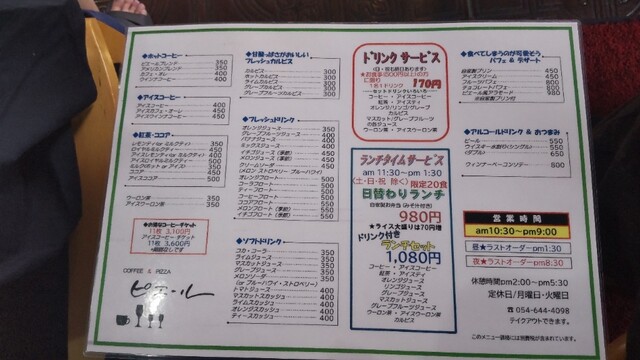 ◆ホットコーヒー
ピエールブレンド 350
アメリカンブレンド 350
カフェ・オレ 400
ウインナコーヒー 400
◆アイスコーヒー
アイスコーヒー 400
アイスカフェ・オーレ 450
アイスウインナコーヒー 450
◆紅茶・ココア
レモンティ(or ミルクティ) 350
ロイヤルミルクティ 450
アイスレモンティ(or ミルクティ) 400
アイスロイヤルミルクティ 500
ミルク(ホット or アイス) 350
ココア 450
アイスココア 500
ウーロン茶 350
アイスウーロン茶 350
◆お得なコーヒーチケット
11枚 3,100円
アイスコーヒー チケット
11枚 3,600円
COFFEE & PIZZA
ピエール
◆甘酸っぱさがおいしい
フレッシュカルピス
カルピス 300
ホットカルピス 300
ライムカルピス 300
グレープカルピス 300
グレープフルーツカルピス 300
◆フレッシュドリンク
オレンジジュース 350
グレープフルーツジュース 400
バナナジュース 400
ミックスジュース 400
イチゴジュース(季節) 450
メロンジュース(季節) 450
クリームソーダ 450
(メロン ストロベリー ブルーハワイ)
オレンジフロート 500
コーラフロート 500
ティーフロート 500
コーヒーフロート 500
ココアフロート 550
メロンフロート(季節) 550
イチゴフロート(季節) 550
◆ソフトドリンク
コカ・コーラ 350
ライムジュース 350
マスカットジュース 350
グレープジュース 350
メロンソーダ 350
(or ブルーハワイ・ストロベリー)
トマトジュース 400
マスカットスカッシュ 400
ライムスカッシュ 400
オレンジスカッシュ 400
ティースカッシュ 400
ドリンク サービス
(日・祝も終日あります)
★お食事(600円以上)の方
に限り
1名1ドリンク 170円
ーセットドリンクいろいろー
コーヒー・アイスコーヒー
紅茶・アイスティ
オレンジ/リンゴ/グレープ
カルピス
マスカット/グレープフルーツ
の各ジュース
ウーロン茶・アイスウーロン茶
ランチタイム サービス
am 11:30~pm 1:30
(土・日・祝 除く) 限定20食
日替わりランチ
日替製お弁当(みそ汁付き)
980円
★ライス大盛りは70円増
ドリンク付き
ランチセット
1,080円
コーヒー・アイスコーヒー
紅茶・アイスティ
オレンジジュース
リンゴジュース
グレープジュース
マスカットジュース
グレープフルーツジュース
ウーロン茶・アイスウーロン茶
カルピス
◆食べてしまうのが可哀そう
パフェ & デザート
自家製プリン 450
アイスクリーム 450
フルーツパフェ 800
チョコレートパフェ 800
ピエール風アラモード 980
※自家製プリン付
◆アルコールドリンク & おつまみ
ビール 550
ウイスキー水割り(シングル) 550
(ダブル) 650
ウィンナーペーコンソテー 800
営業時間
am10:30~pm9:00
昼★ラストオーダーpm1:30
夜★ラストオーダーpm8:30
休憩時間pm2:00~pm5:30
定休日/月曜日・火曜日
☎054-644-4098
テイクアウトできます。
このメニュー価格には消費税が含まれています。